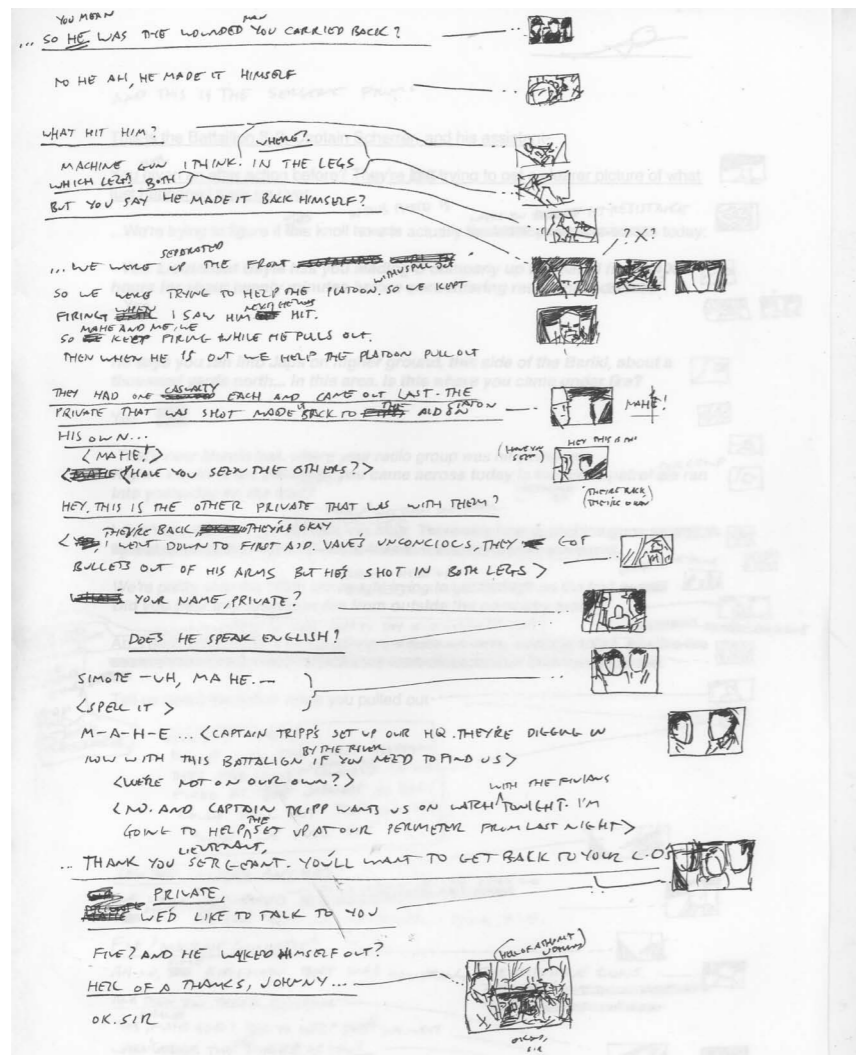 YOU MEAN
... SO HE WAS THE WOUNDED MAN YOU CARRIED BACK?
NO HE AH, HE MADE IT HIMSELF
WHAT HIT HIM?
WHERE?
MACHINE GUN I THINK. IN THE LEGS
WHICH LEGS? BOTH
BUT YOU SAY HE MADE IT BACK HIMSELF?
? X ?
SEPERATED
... WE WERE UP THE FRONT
SO WE WERE TRYING TO HELP THE PLATOON. SO WE KEPT
FIRING WHEN I SAW HIM HIT.
MAHE AND ME, WE
SO KEEP FIRING WHILE HE PULLS OUT.
THEN WHEN HE IS OUT WE HELP THE PLATOON PULL OUT
THEY HAD ONE CASUALTY EACH AND CAME OUT LAST. THE
PRIVATE THAT WAS SHOT MADE IT BACK TO THE AID STATION
MAHE!
HIS OWN...
<MAHE!>
<HAVE YOU SEEN THE OTHERS?>
(HAVE YOU SEEN)
HEY THIS IS
(THEY'RE BACK)
(THEY'RE OKAY
HEY. THIS IS THE OTHER PRIVATE THAT WAS WITH THEM?
THEY'RE BACK, THEY'RE OKAY
< I WENT DOWN TO FIRST AID. VAVE'S UNCONCIOUS, THEY GOT
BULLETS OUT OF HIS ARMS BUT HE'S SHOT IN BOTH LEGS >
YOUR NAME, PRIVATE?
DOES HE SPEAK ENGLISH?
SIMOTE - UH, MAHE...
<SPELL IT >
M-A-H-E ... <CAPTAIN TRIPP'S SET UP OUR HQ. THEY'RE DIGGING IN
BY THE RIVER
NOW WITH THIS BATTALIGN IF YOU NEED TO FIND US>
<WE'RE NOT ON OUR OWN?>
WITH THE FIJIANS
<NO. AND CAPTAIN TRIPP WANTS US ON WATCH TONIGHT. I'M
GOING TO HELP THE SET UP AT OUR PERIMETER FROM LAST NIGHT>
LIEUTENANT,
... THANK YOU SERGEANT. YOU'LL WANT TO GET BACK TO YOUR C.O
PRIVATE,
WE'D LIKE TO TALK TO YOU
FIVE? AND HE WALKED HIMSELF OUT?
HELL OF A THANKS, JOHNNY...
OK. SIR